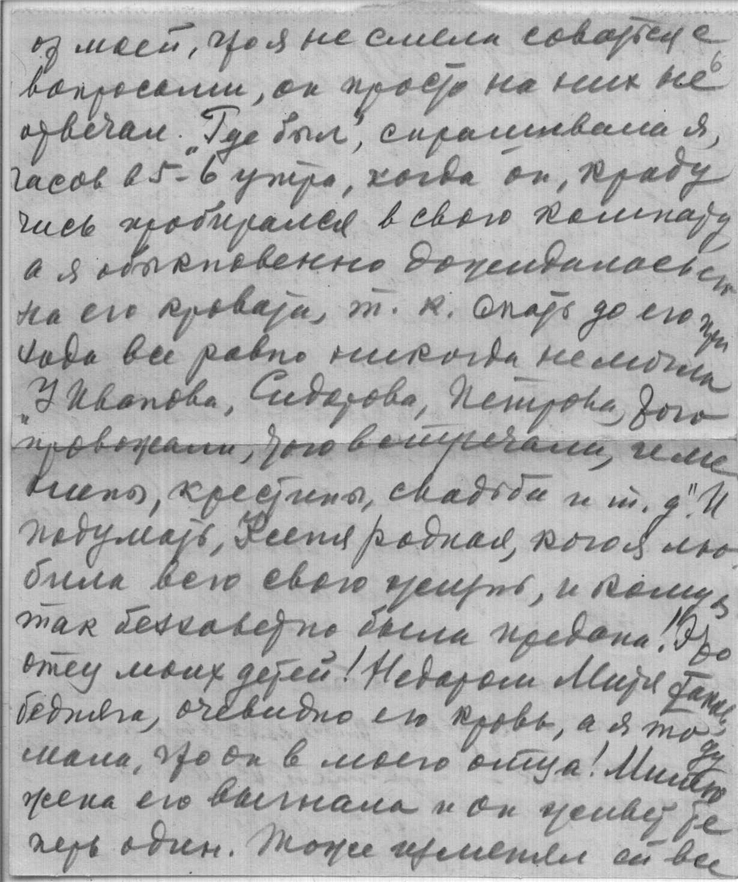 от моей, что я не смела соваться с
вопросами, он просто на них не
отвечал. "Где был", спрашивала я,
часов в 5-6 утра, когда он, краду
чись пробирался в свою комнату
а я обыкновенно дожидалась его
на его кровати, т. к. спать до его при
хода все равно никогда не могла
"У Иванова, Сидорова, Петрова, того
провожали, того встречали, име
нины, крестины, свадьба и т. д." И
подумать, Ксеня родная, кого я лю
била всю свою жизнь, и кому я
так беззаветно была предана! Это
отец моих детей! Недаром Митя такой
бедняга, очевидно его кровь, а я то ду
мала, что он в моего отца! Митю
жена его выгнала и он живет те
перь один. Тоже изменял ей все